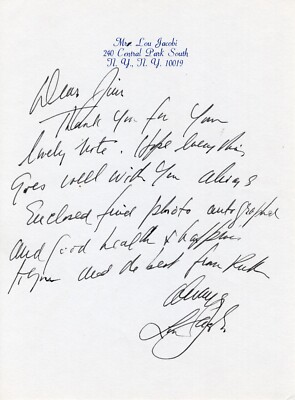 Mrs. Lou Jacobi
240 Central Park South
N. Y., N. Y. 10019
Dear Jim
Thank you for your
lovely note. Hope everything
Goes well with you always
Enclosed find photo autographed
and good health & happiness
to you and the best from Ruth
always
Lou Jacobi